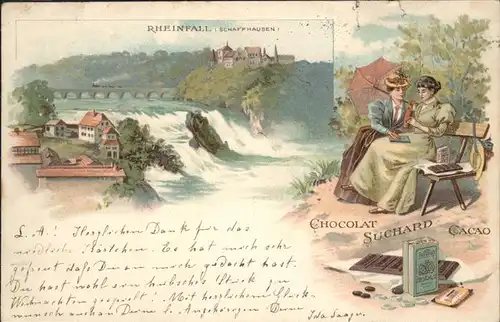 RHEINFALL (SCHAFFHAUSEN)
CHOCOLAT
SUCHARD
CACAO
L. A.! Herzlichen Dank für das
Kärtchen. Es hat mich sehr
gefreut daß Du an mich gedacht hast.
Du hast wohl ein hübsches Stück zu
Weihnachten gespielt? Mit herzlichem Glück-
wunsch auch an Deine l. Angehörigen Deine
Ida